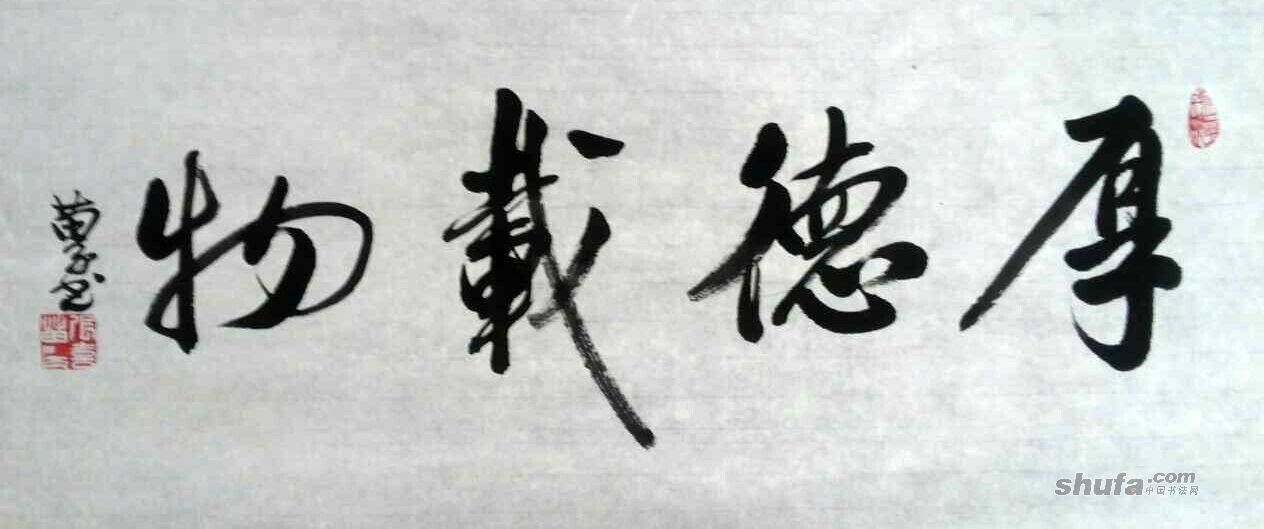 厚德載物
shufa.com
中国书法网